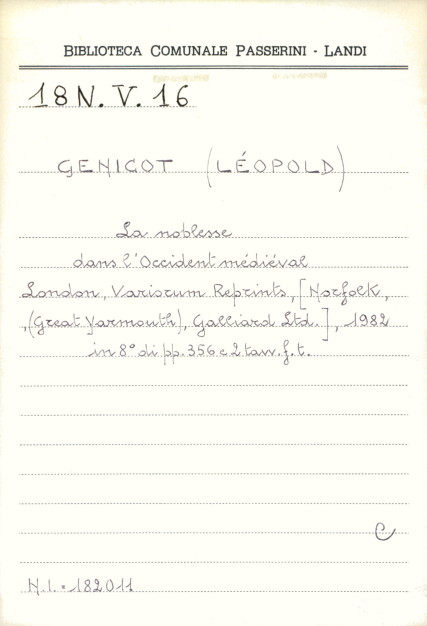 BIBLIOTECA COMUNALE PASSERINI - LANDI
18 N. V. 16
GENICOT (LÉOPOLD)
La noblesse
dans l'Occident médiéval
London, Variorum Reprints, [Norfolk,
,(Great Yarmouth), Galliard Ltd.], 1982
in 8° di pp. 356 e 2 tavv. f. t.
C
N.I. = 182011